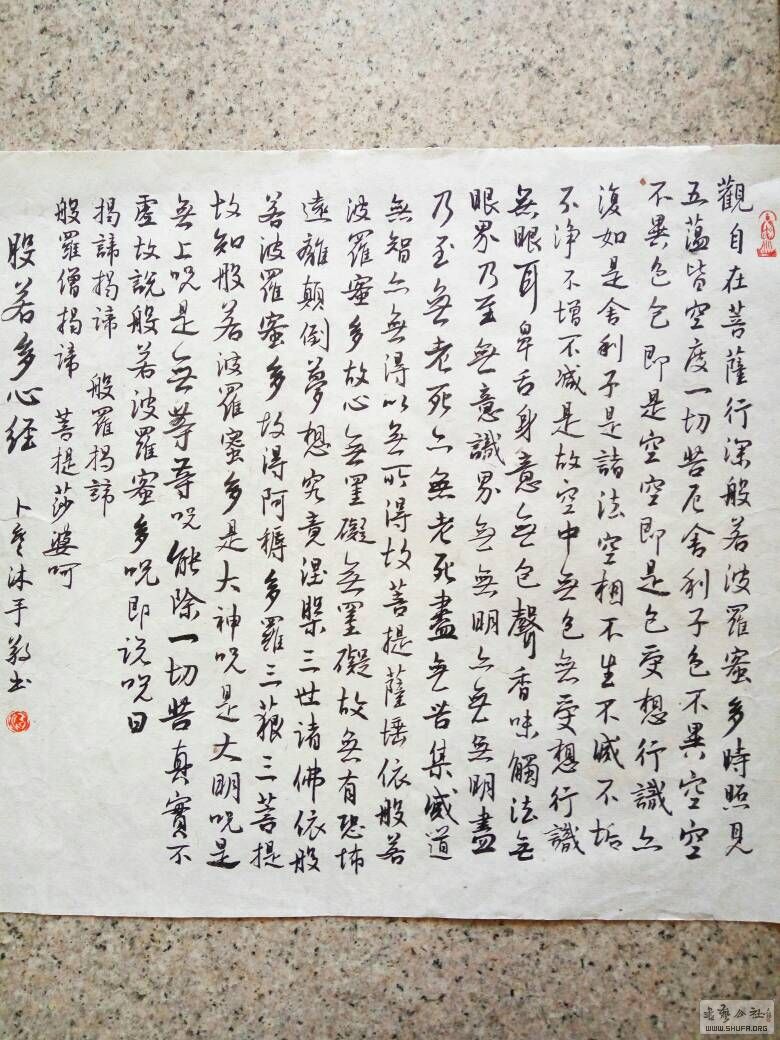 觀自在菩薩行深般若波羅蜜多時照見
五蕴皆空度一切苦厄舍利子色不異空空
不異色色即是空空即是色受想行識亦
復如是舍利子是諸法空相不生不滅不垢
不净不增不减是故空中無色無受想行識
無眼耳鼻舌身意無色聲香味觸法無
眼界乃至無意識界無無明亦無無明盡
乃至無老死亦無老死盡無苦集滅道
無智亦無得以無所得故菩提薩埵依般若
波羅蜜多故心無罣礙無罣礙故無有恐怖
遠離顛倒夢想究竟涅槃三世諸佛依般
若波羅蜜多故得阿耨多羅三藐三菩提
故知般若波羅蜜多是大神咒是大明咒是
無上咒是無等等咒能除一切苦真實不
虚故說般若波羅蜜多咒即说咒曰
揭諦揭諦 般羅揭諦
般羅僧揭諦 菩提莎婆呵
般若多心經 卜 沐手敬书
WWW.SHUFA.ORG